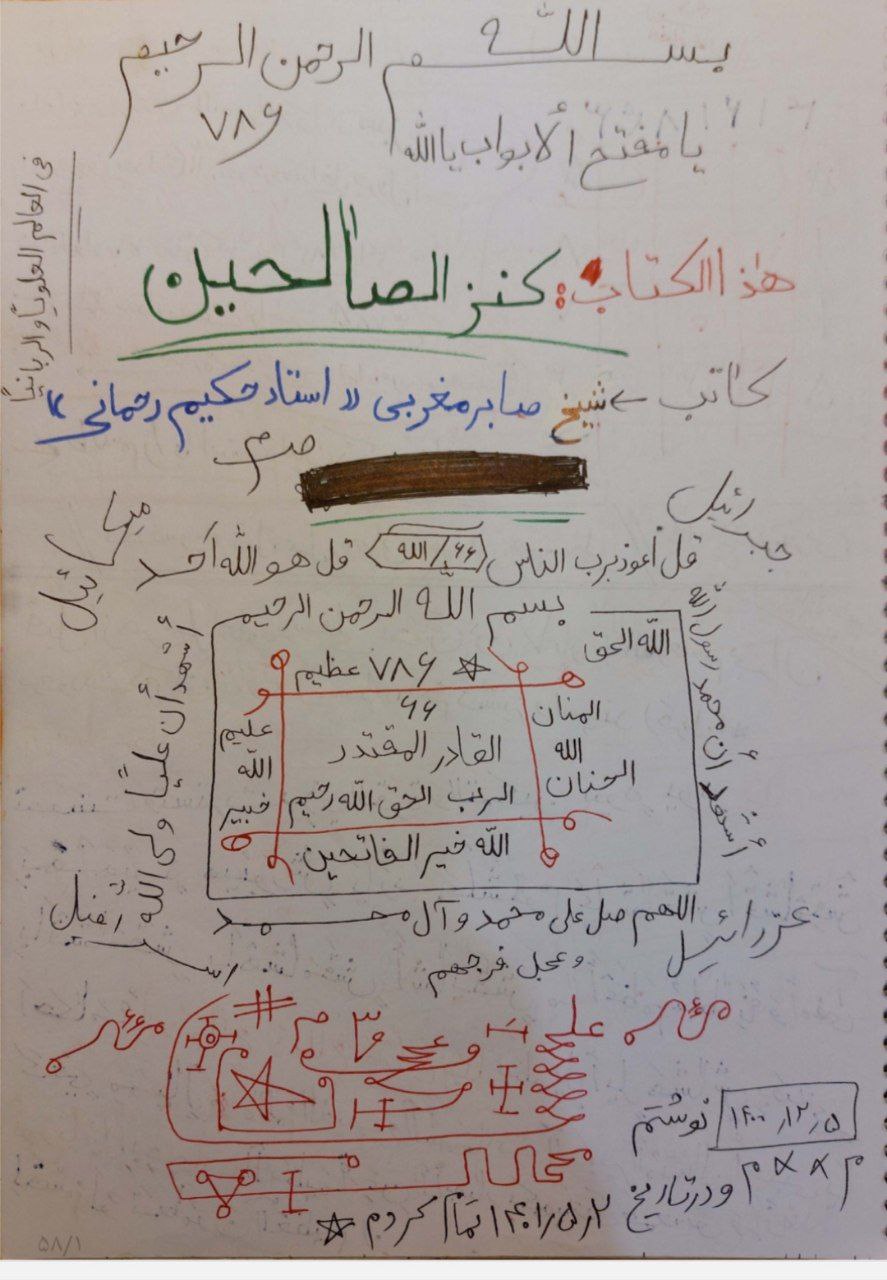 بسم اللّه الرحمن الرحیم
۷۸۶
یا مفتح ألابواب یا الله
فی العالم العلویاً و الربانیاً
هٰذا الکتاب: کنز الصالحین
کاتب ← شیخ صابر مغربی «استاد حکیم رحمانی»
جبرائیل
میکائیل
قل أعوذ برب الناس ۶۶/الله قل هو الله أحد
بسم اللّه الرحمن الرحیم
اللّه الحق
۷۸۶ عظیم
۶۶
المنان
الله
الحنان
القادر المقتدر
الرب الحق اللّه رحیم
علیم
اللّه
خبیر
اللّه خیر الفاتحین
أشهد أن محمد رسول اللّه
أشهد أن علیاً ولی اللّه
اللهم صل علی محمد و آل محمد
و عجل فرجهم
عزرائیل
۱۴۰۰٫۱۲٫۵ نوشتم
و در تاریخ ۱۴۰۱٫۵٫۲ تمام کردم
۵۸/۱